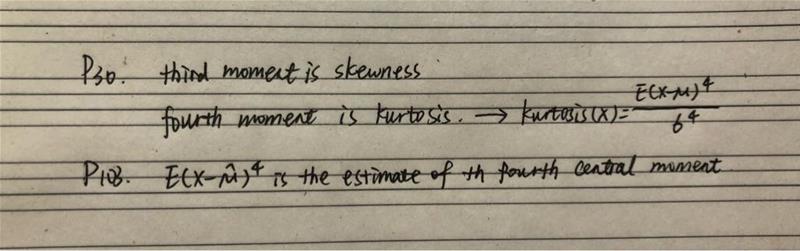 P30. third moment is skewness
fourth moment is kurtosis. → kurtosis(X)= E(X-μ)⁴ / σ⁴
P103. E(X-μ̂)⁴ is the estimate of th fourth central moment